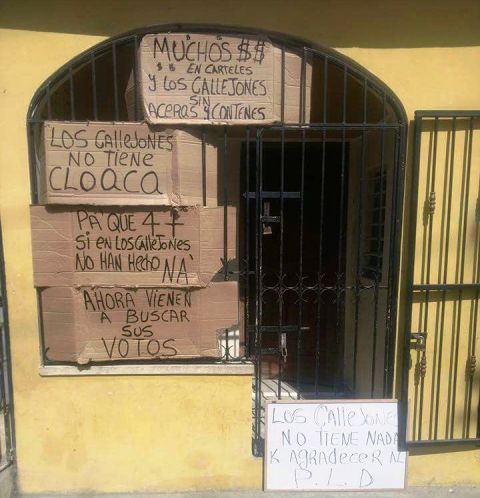 MUCHOS $$
$$ EN CARTELES
Y LOS CALLEJONES
SIN
ACERAS Y CONTENES
LOS CALLEJONES
NO TIENE
CLOACA
PA' QUE 4+
SI EN LOS CALLEJONES
NO HAN HECHO NA'
AHORA VIENEN
A BUSCAR
SUS
VOTOS
LOS CALLEJONES
NO TIENE NADA
K AGRADECER AL
P.L.D